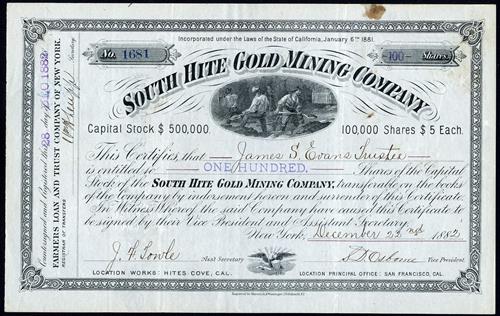 Incorporated under the Laws of the State of California, January 6th 1881.
No. 1681
100 Shares
SOUTH HITE GOLD MINING COMPANY
Capital Stock $ 500,000.
100,000 Shares $ 5 Each.
This Certifies, that James S. Evans Trustee
is entitled to ONE HUNDRED Shares of the Capital
Stock of the SOUTH HITE GOLD MINING COMPANY, transferable on the books
of the Company by indorsement hereon and surrender of this Certificate.
In Witness Whereof the said Company have caused this Certificate to
be signed by their Vice President and Assistant Secretary.
New York, December 23rd 1882
Asst Secretary
LOCATION WORKS: HITES COVE, CAL.
LOCATION PRINCIPAL OFFICE: SAN FRANCISCO, CAL.
Countersigned and Registered this 28 day of 1882
FARMERS LOAN AND TRUST COMPANY OF NEW YORK.
REGISTRAR OF TRANSFERS
Secretary